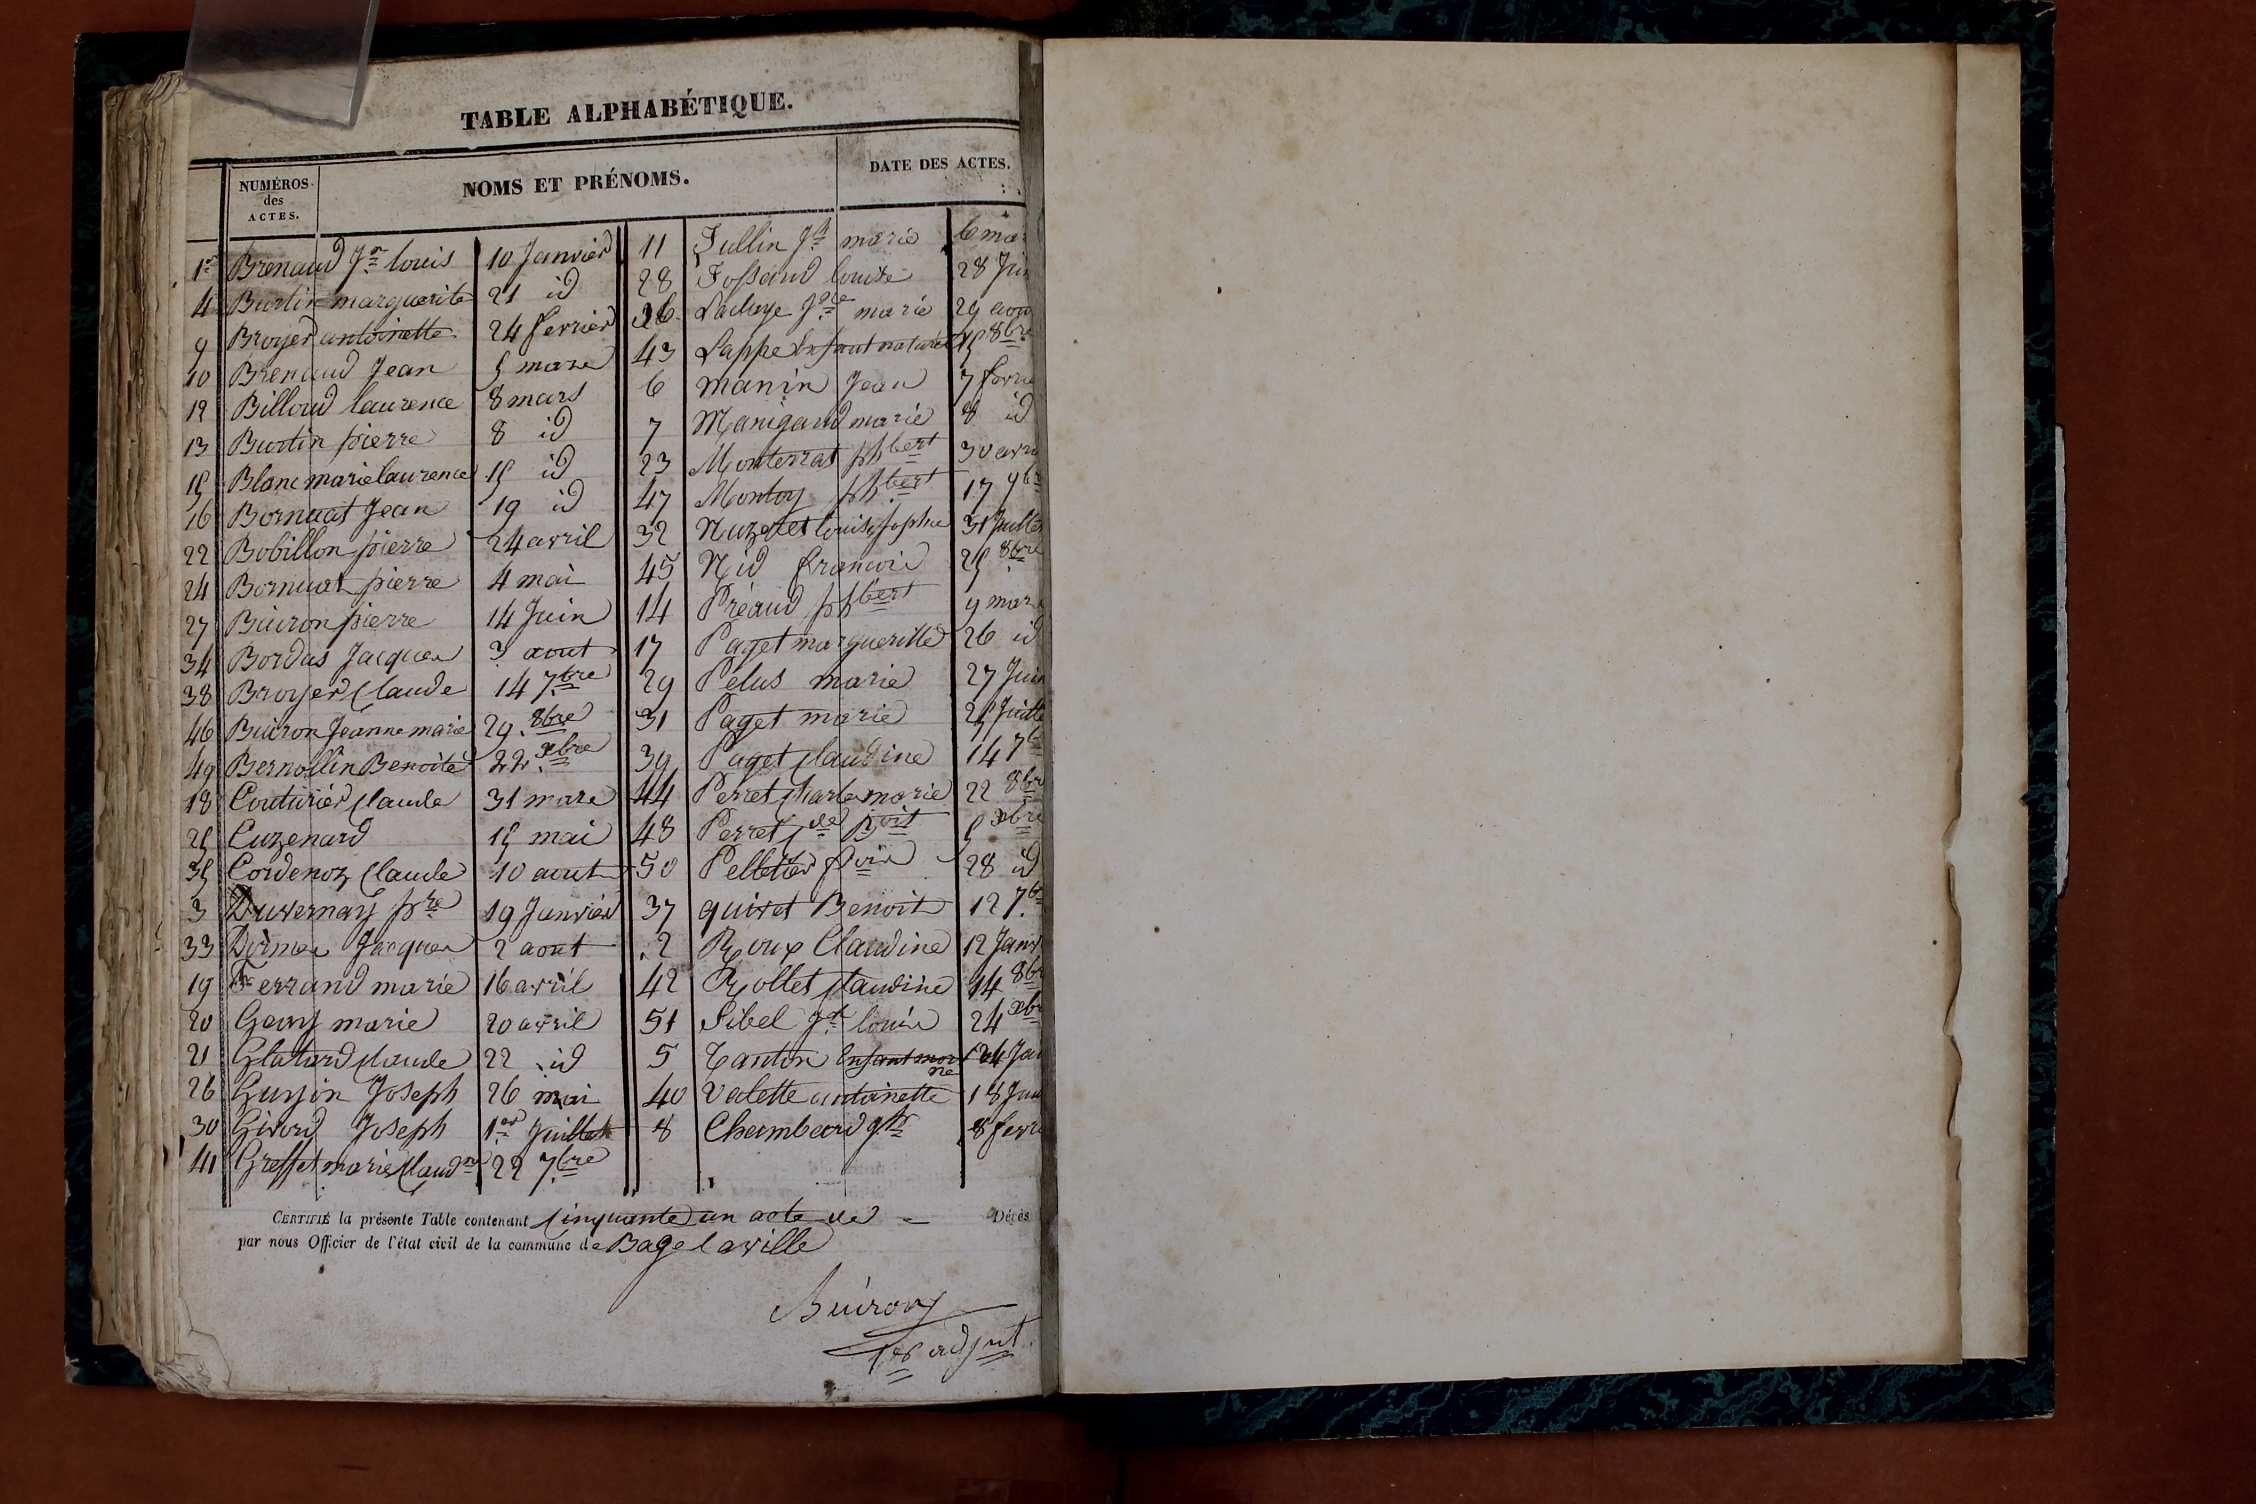 TABLE ALPHABÉTIQUE.
NUMÉROS des ACTES.
NOMS ET PRÉNOMS.
DATE DES ACTES.
1er Brenaud Jn louis 10 Janvier
4 Burtin marguerite 21 id
9 Broyer antoinette 24 fevrier
10 Brenaud Jean 5 mars
12 Billoud laurence 8 mars
13 Burtin pierre 8 id
15 Blanc marie laurence 15 id
16 Bornuat Jean 19 id
22 Bobillon pierre 24 avril
24 Bornuat pierre 4 mai
27 Buiron pierre 14 Juin
34 Bordas Jacques 3 aout
38 Broyer Claude 14 7bre
46 Buiron Jeanne marie 29 8bre
49 Bernollin Benoite 22 xbre
18 Couturier Claude 31 mars
25 Cuzenard 15 mai
35 Cordenoz Claude 10 aout
3 Duvernay pre 19 Janvier
33 Jacques 2 aout
19 Ferrand marie 16 avril
20 marie 20 avril
21 Glatard Claude 22 id
26 Guyon Joseph 26 mai
30 Givord Joseph 1er Juillet
41 Greffet marie Claudne 22 7bre
11 Jullin Jh marie 6 mar
28 Fossand louise 28 Jui
36 marie 29 aou
43 Lappe Enfant naturel 15 8bre
6 manin Jean 7 fevri
7 Manigand marie 8 id
23 Monterrat phbert 30 avri
47 Montoy phbert 17 9br
32 Nuzeret louise sophie 31 Juille
45 Nid francois 25 8bre
14 Préaud phbert 9 mar
17 Paget margueritte 26 id
29 Pelus marie 27 Jui
31 Paget marie 25 Juille
39 Paget Claudine 14 7b
44 Perret Charles marie 22 8br
48 Perret Jde Boit 5 xbre
50 Pelletier fois 28 id
37 quivet Benoit 12 7b
2 Roux Claudine 12 Janv
42 Rollet Claudine 14 8br
51 Sibel louis 24 xbr
5 Tanton Enfant mor né 24 Jan
40 Valette antoinette 18
8 Chambard 8 fevri
CERTIFIÉ la présente Table contenant Cinquante un acte de Décès
par nous Officier de l'état civil de la commune de Bagé la ville
Buiron
1er adjnt